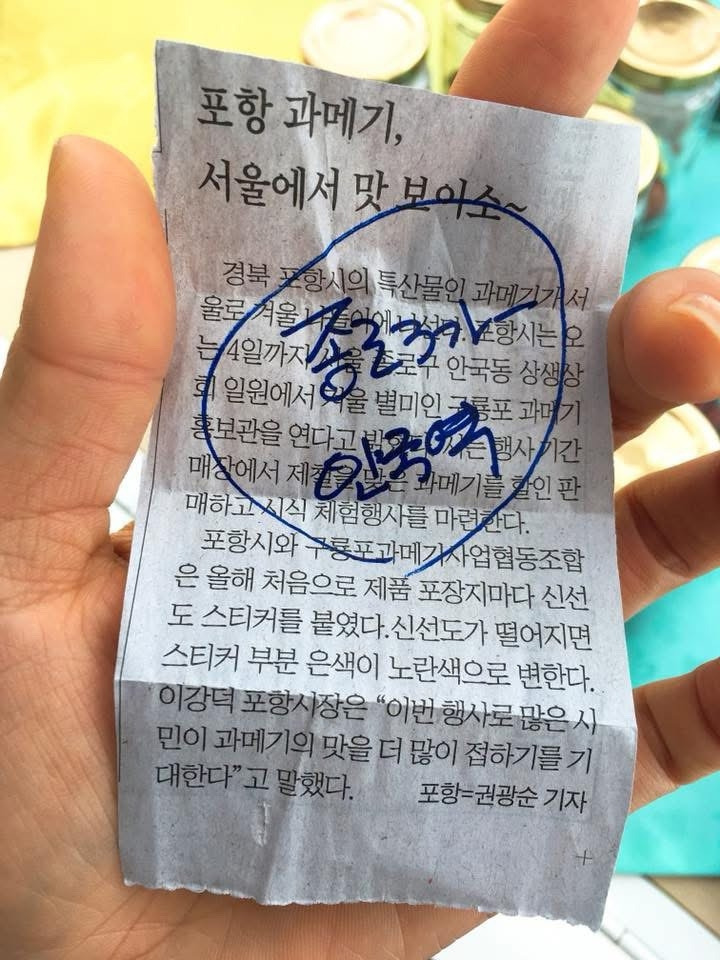 포항 과메기,
서울에서 맛 보이소~
경북 포항시의 특산물인 과메기가 서
울로 겨울 나들이에 나선다. 포항시는 오
는 4일까지 서울 종로구 안국동 상생상
회 일원에서 겨울 별미인 구룡포 과메기
홍보관을 연다고 밝혔다. 시는 행사 기간
매장에서 제철을 맞은 과메기를 할인 판
매하고 시식 체험행사를 마련한다.
포항시와 구룡포과메기사업협동조합
은 올해 처음으로 제품 포장지마다 신선
도 스티커를 붙였다.신선도가 떨어지면
스티커 부분 은색이 노란색으로 변한다.
이강덕 포항시장은 “이번 행사로 많은 시
민이 과메기의 맛을 더 많이 접하기를 기
대한다”고 말했다.
포항=권광순 기자
종로3가
안국역